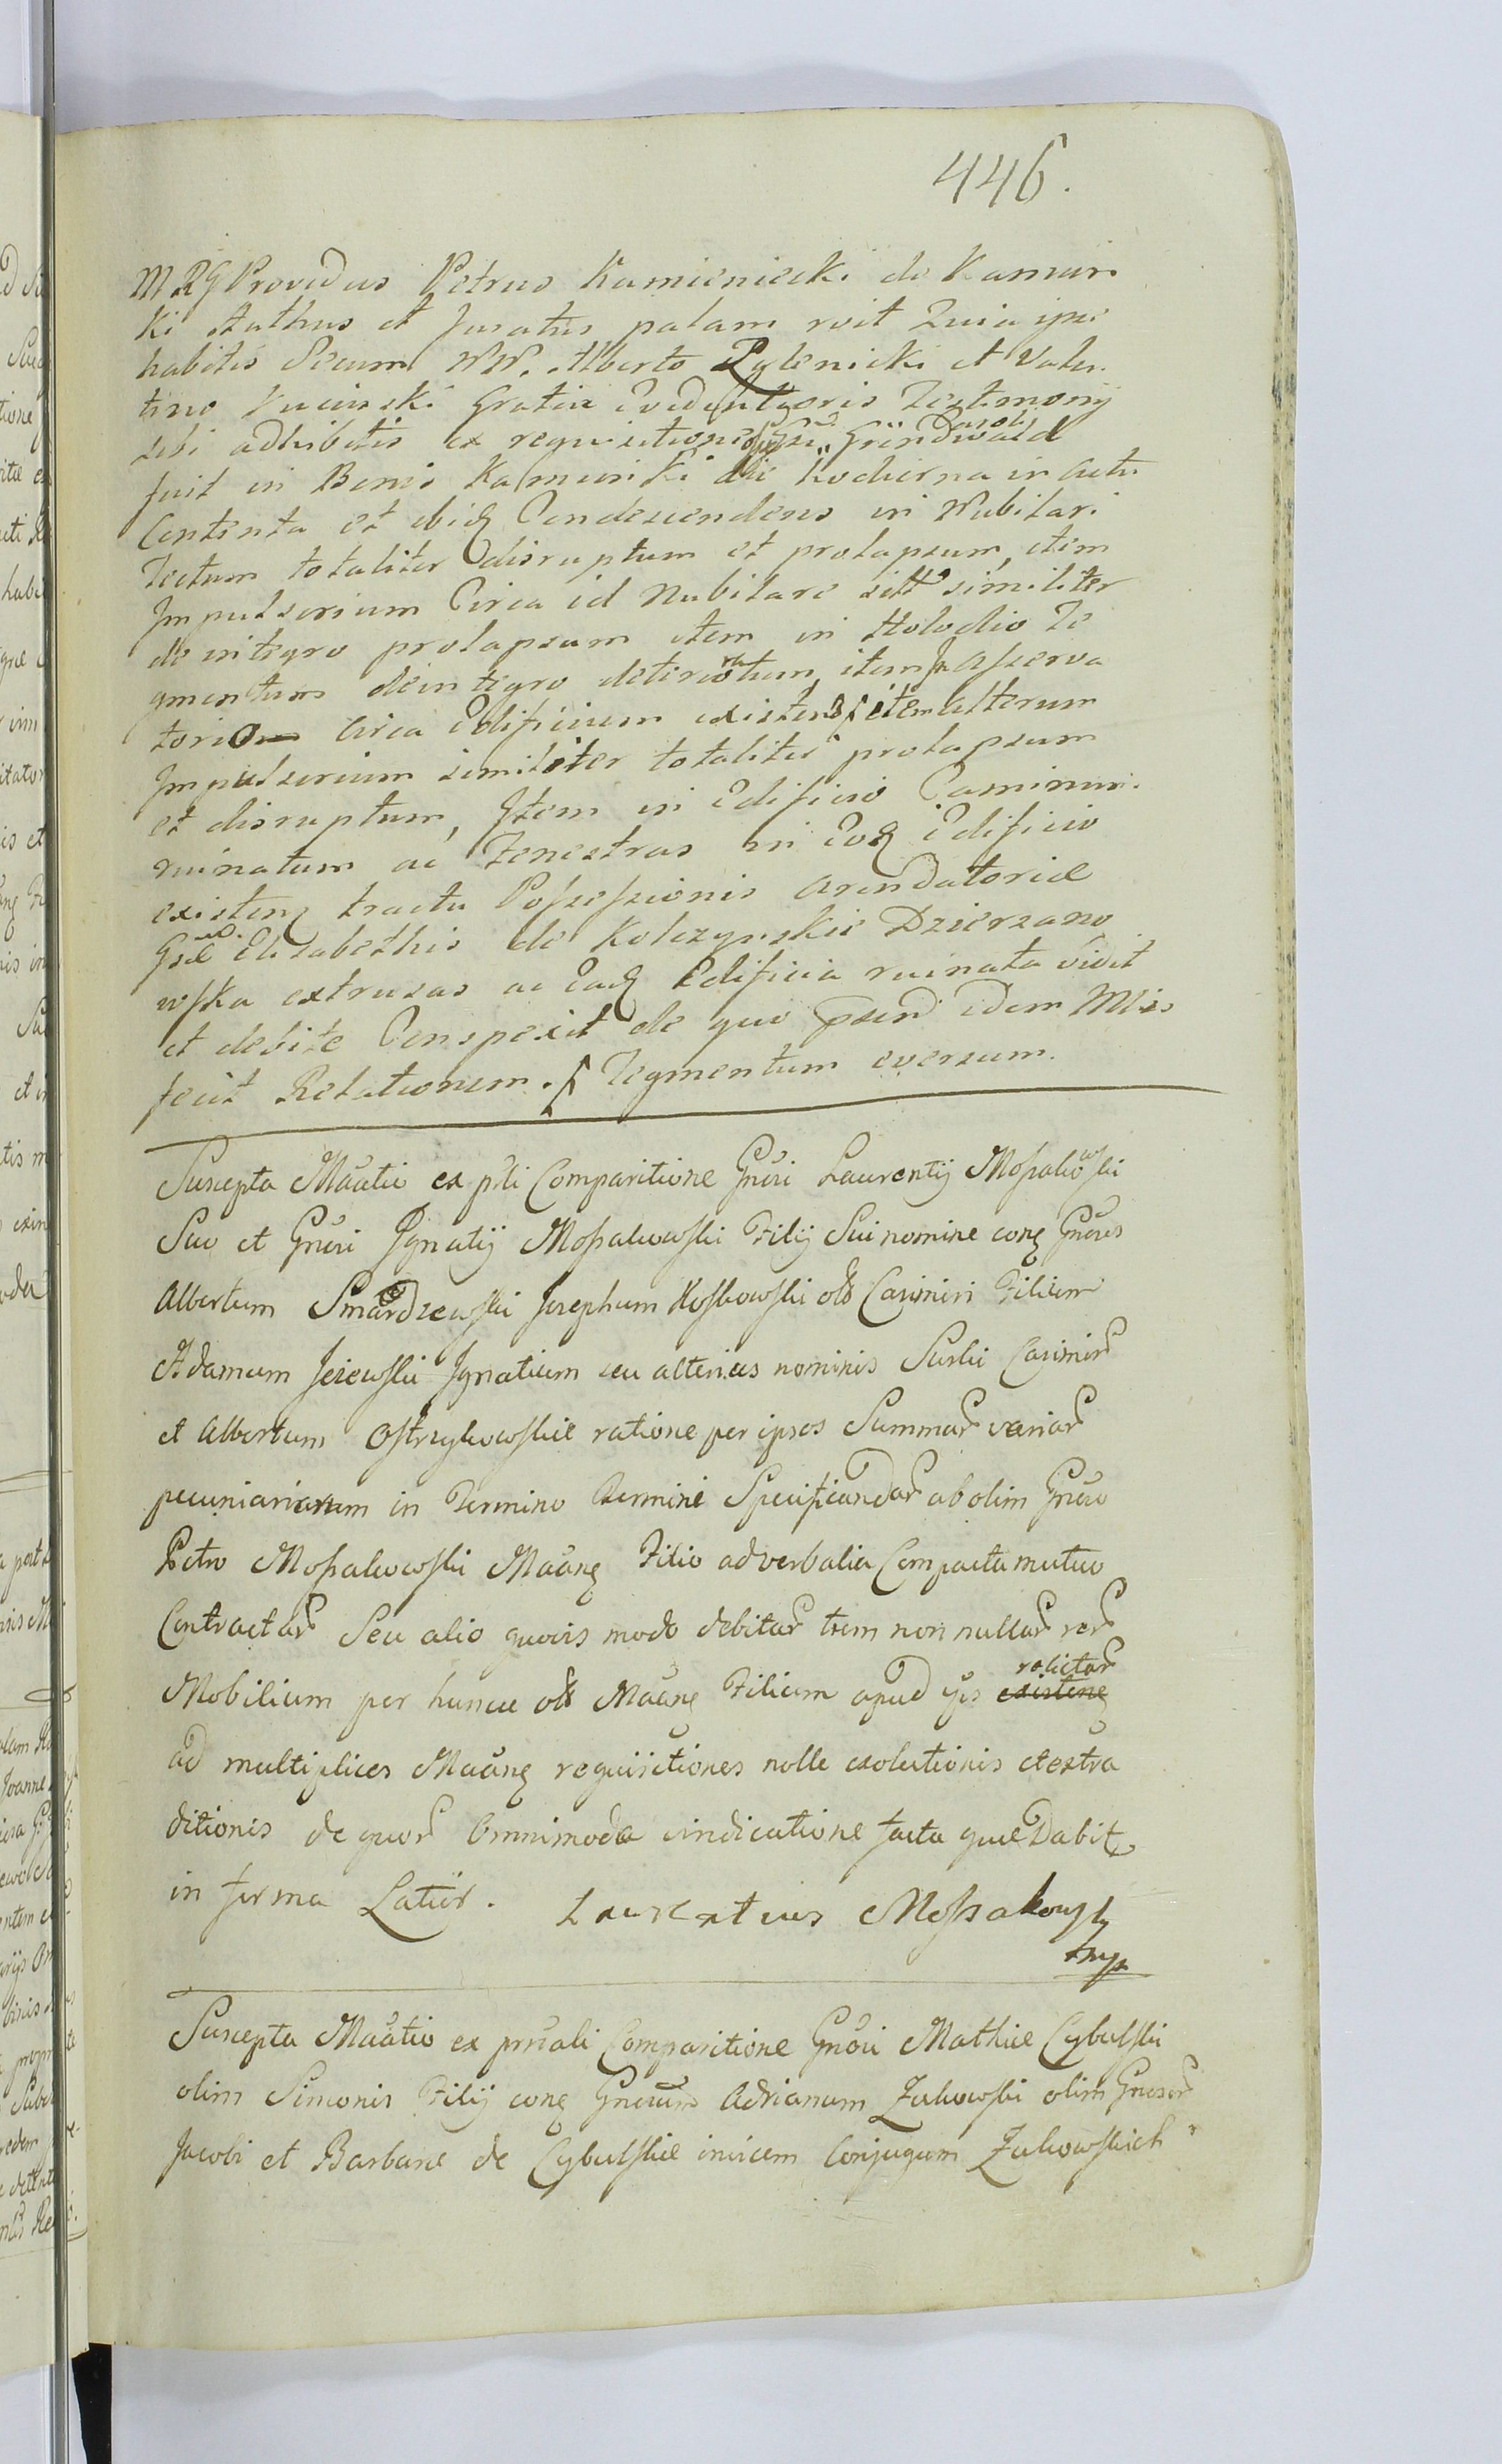 446.
MRG Providus Petrus Kamieniecki de Kamien
ki stathus et Juratus palam roit Quia ipse
habitis Secum NN. Alberto Pylenicki et Valen
tino Kucinski Gratia Evidentioris Testimonij
sibi adhibitis ex requisitione Gsi Gründwald
fuit in Bonis Kamienski die hodierna in actu
Contenta et ibiq Condescendens in Nubilari
Tectum totaliter disruptum et prolapsum, item
Impulsorium Circa id Nubilare sitt similiter
de integro prolapsum item in Holodio Te
gmentum deintegro deterioratum, item In Asserva
torio Circa Edificium existens item alterum
Impulsorium similiter totaliter prolapsum
et disruptum, Item in Edificio Caminum
ruinatum ac Fenestras in Eoq Edificio
existenq tractu Possessionis Arendatoriæ
Gsæ Elisabethis de Kolczynskie Dzierzano
wska extrusas ac Eadq Edificia ruinata Vidit
et debite Conspexit de quo psend idem Mlis
fecit Relationem. Tegmentum eversum.
Suscepta Maũtio ex pñli Comparitione Gnősi Laurentij Mossakowski
Suo et Gnősi Ignatij Mossakowski Filij Sui nomine conq Gnősos
Albertum Smardzewski Josephum Koskowski olő Casimiri Filium
Adamum Jeiewski Ignatium seu alterius nominis Surski Casimirũ
et Albertum Ostrzykowskie ratione per ipsos Summarũ variarũ
pecuniariarum in Termino Termine Specificandarũ ab olim Gnőso
Petro Mossakowski Maũnq Filio ad verbalia Compacta mutuo
Contractarũ Seu alio quovis modo debitarũ trem non nullarũ rerũ
Mobilium per hunce olő Maũnq Filium apud ijs existenq relictarũ
ad multiplices Maũnq requisitiones nolle exolutionis et extra
ditionis de quorũ Omnimoda vindicatione facta quæ Dabit
in forma Latiőr. Laurentius Mossakowsky
mp
Suscepta Maũtio ex prnali Comparitione Gnősi Mathiæ Cybulski
olim Simonis Filij conq Gnősum Adrianum Zukowski olim Gnősorũ
Jacobi et Barbaræ de Cybulskie invicem Conjugum Zukowskich